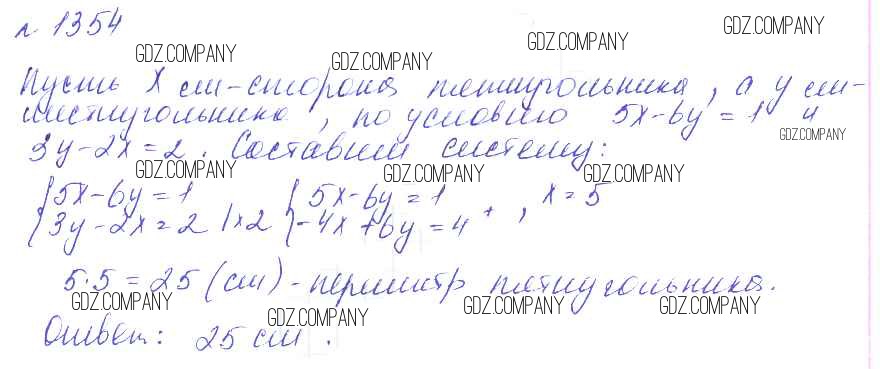 № 1354
GDZ.COMPANY GDZ.COMPANY GDZ.COMPANY GDZ.COMPANY
Пусть x см-сторона пятиугольника, а y см-
шестиугольника, по условию 5x-6y=1 и
GDZ.COMPANY
3y-2x=2. Составим систему:
GDZ.COMPANY GDZ.COMPANY GDZ.COMPANY
{5x-6y=1 {5x-6y=1 , x=5
{3y-2x=2 |x2 {-4x+6y=4 +
5·5=25 (см)-периметр пятиугольника.
GDZ.COMPANY GDZ.COMPANY GDZ.COMPANY GDZ.COMPANY
Ответ: 25 см.